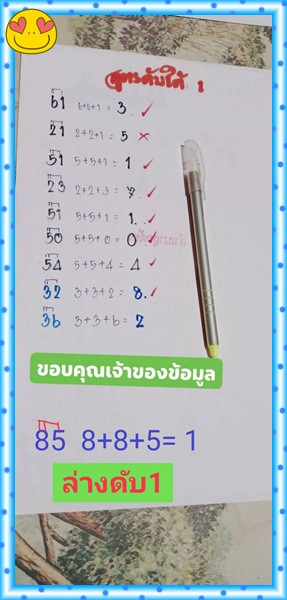 สูตรดับใต้ 1
61 6+6+1 = 3. ✓
21 2+2+1 = 5 ×
51 5+5+1 = 1 ✓
23 2+2+3 = 7. ✓
51 5+5+1 = 1. ✓
50 5+5+0 = 0 ✓
54 5+5+4 = 4 ✓
32 3+3+2 = 8. ✓
36 3+3+6 = 2
ขอบคุณเจ้าของข้อมูล
85 8+8+5= 1
ล่างดับ1